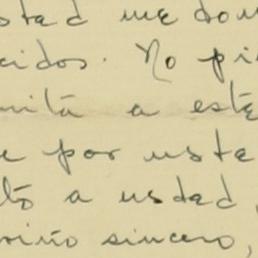 stad me don
cidos. No pi
nita a esta
e por uste
tó a usdad,
riño sincero,